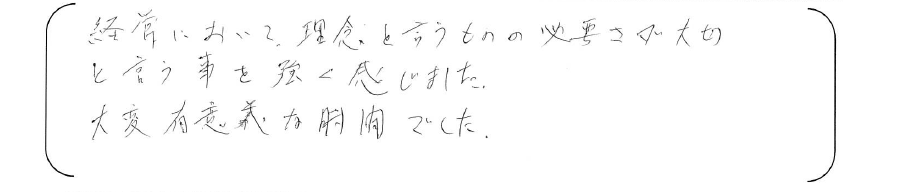 経営において、理念と言うものの必要さが大切
と言う事を強く感じました。
大変有意義な時間でした。